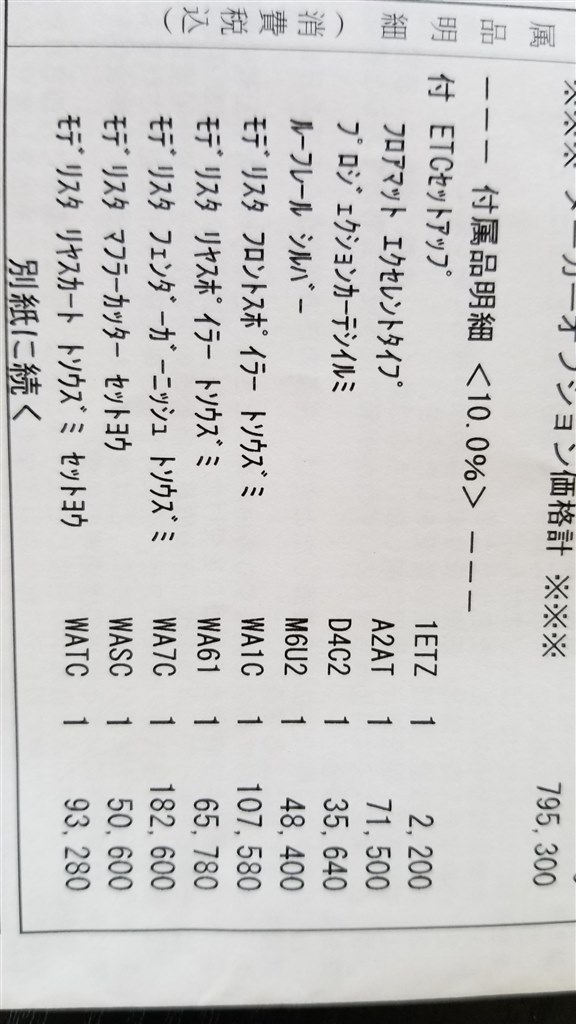 ※※※ メーカーオプション価格計 ※※※ 795,300
--- 付属品明細 <10.0%> ---
付 ETCセットアップ 1ETZ 1 2,200
フロアマット エクセレントタイプ A2AT 1 71,500
プロジェクションカーテシイルミ D4C2 1 35,640
ルーフレール シルバー M6U2 1 48,400
モデリスタ フロントスポイラー トソウズミ WA1C 1 107,580
モデリスタ リヤスポイラー トソウズミ WA61 1 65,780
モデリスタ フェンダーガーニッシュ トソウズミ WA7C 1 182,600
モデリスタ マフラーカッター セットヨウ WASC 1 50,600
モデリスタ リヤスカート トソウズミ セットヨウ WATC 1 93,280
別紙に続く
属品明細(消費税込)